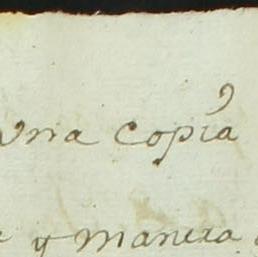 una copia
y manera